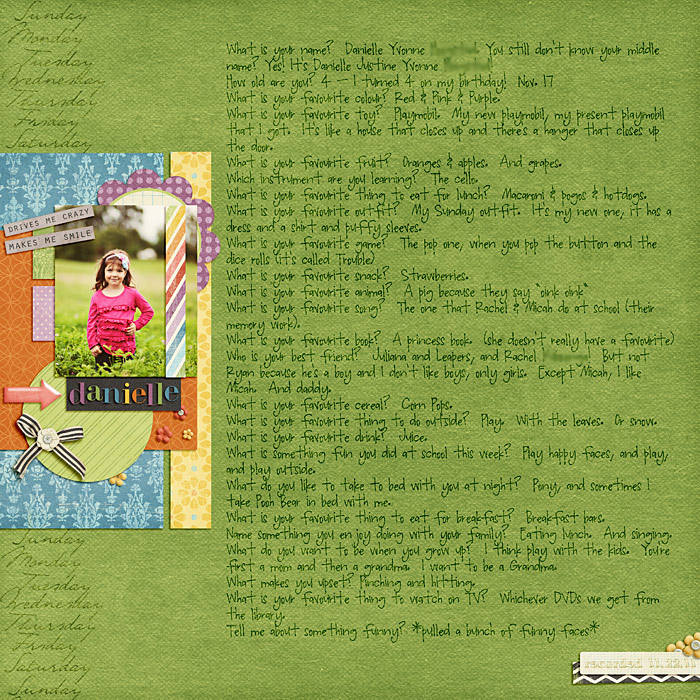 Sunday
Monday
Tuesday
Wednesday
Thursday
Friday
Saturday
DRIVES ME CRAZY
MAKES ME SMILE
danielle
Sunday
Monday
Tuesday
Wednesday
Thursday
Friday
Saturday
Sunday
What is your name? Danielle Yvonne You still don't know your middle
name? Yes! It's Danielle Justine Yvonne
How old are you? 4 - I turned 4 on my birthday! Nov. 17
What is your favourite colour? Red & Pink & Purple.
What is your favourite toy? Playmobil. My new playmobil, my present playmobil
that I got. It's like a house that closes up and there's a hanger that closes up
the door.
What is your favourite fruit? Oranges & apples. And grapes.
Which instrument are you learning? The cello.
What is your favourite thing to eat for lunch? Macaroni & pogos & hotdogs.
What is your favourite outfit? My Sunday outfit. It's my new one, it has a
dress and a shirt and puffy sleeves.
What is your favourite game? The pop one, when you pop the button and the
dice rolls (it's called Trouble)
What is your favourite snack? Strawberries.
What is your favourite animal? A pig because they say "oink oink"
What is your favourite song? The one that Rachel & Micah do at school (their
memory work).
What is your favourite book? A princess book. (she doesn't really have a favourite)
Who is your best friend? Juliana and Leapers, and Rachel ! But not
Ryan because he's a boy and I don't like boys, only girls. Except Micah, I like
Micah. And daddy.
What is your favourite cereal? Corn Pops.
What is your favourite thing to do outside? Play. With the leaves. Or snow.
What is your favourite drink? Juice.
What is something fun you did at school this week? Play happy faces, and play,
and play outside.
What do you like to take to bed with you at night? Pony, and sometimes I
take Pooh Bear in bed with me.
What is your favourite thing to eat for breakfast? Breakfast bars.
Name something you enjoy doing with your family? Eating lunch. And singing.
What do you want to be when you grow up? I think play with the kids. You're
first a mom and then a grandma. I want to be a Grandma.
What makes you upset? Pinching and hitting.
What is your favourite thing to watch on TV? Whichever DVDs we get from
the library.
Tell me about something funny? *pulled a bunch of funny faces*
recorded 11.22.11